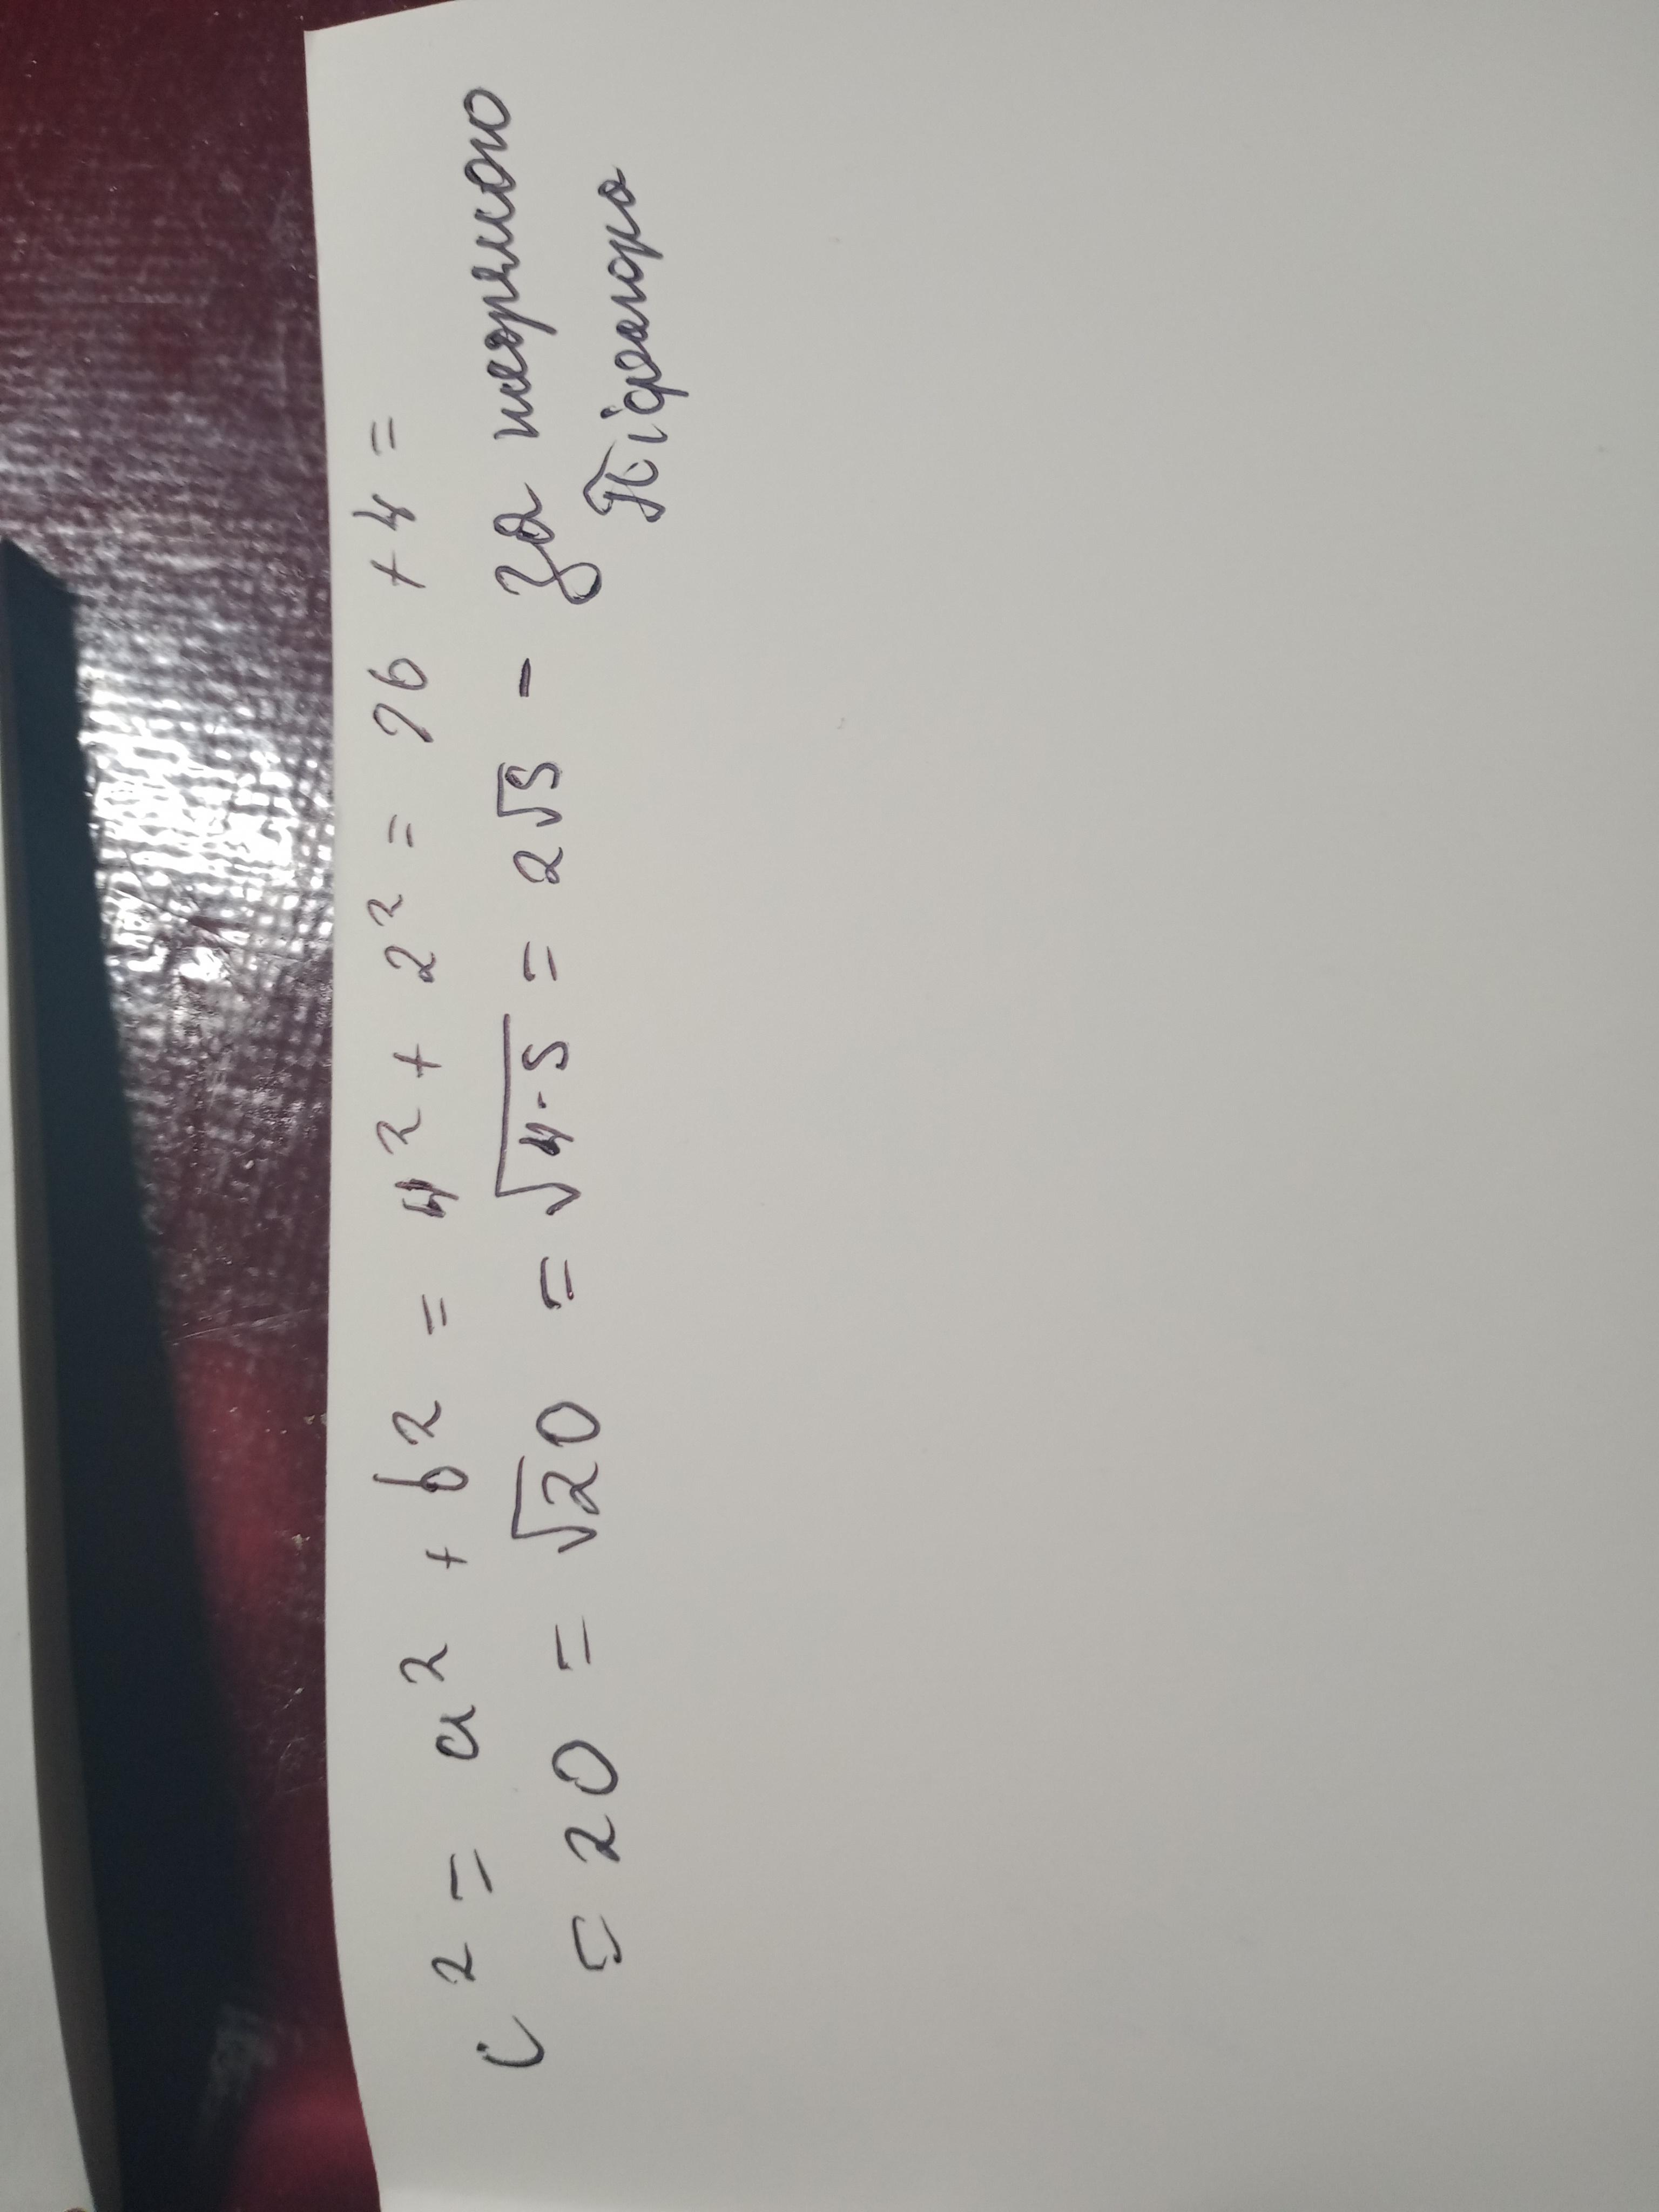 c² = a² + b² = 4² + 2² = 16 + 4 =
= 20 = √20 = √4·5 = 2√5 - за теоремою
Піфагора